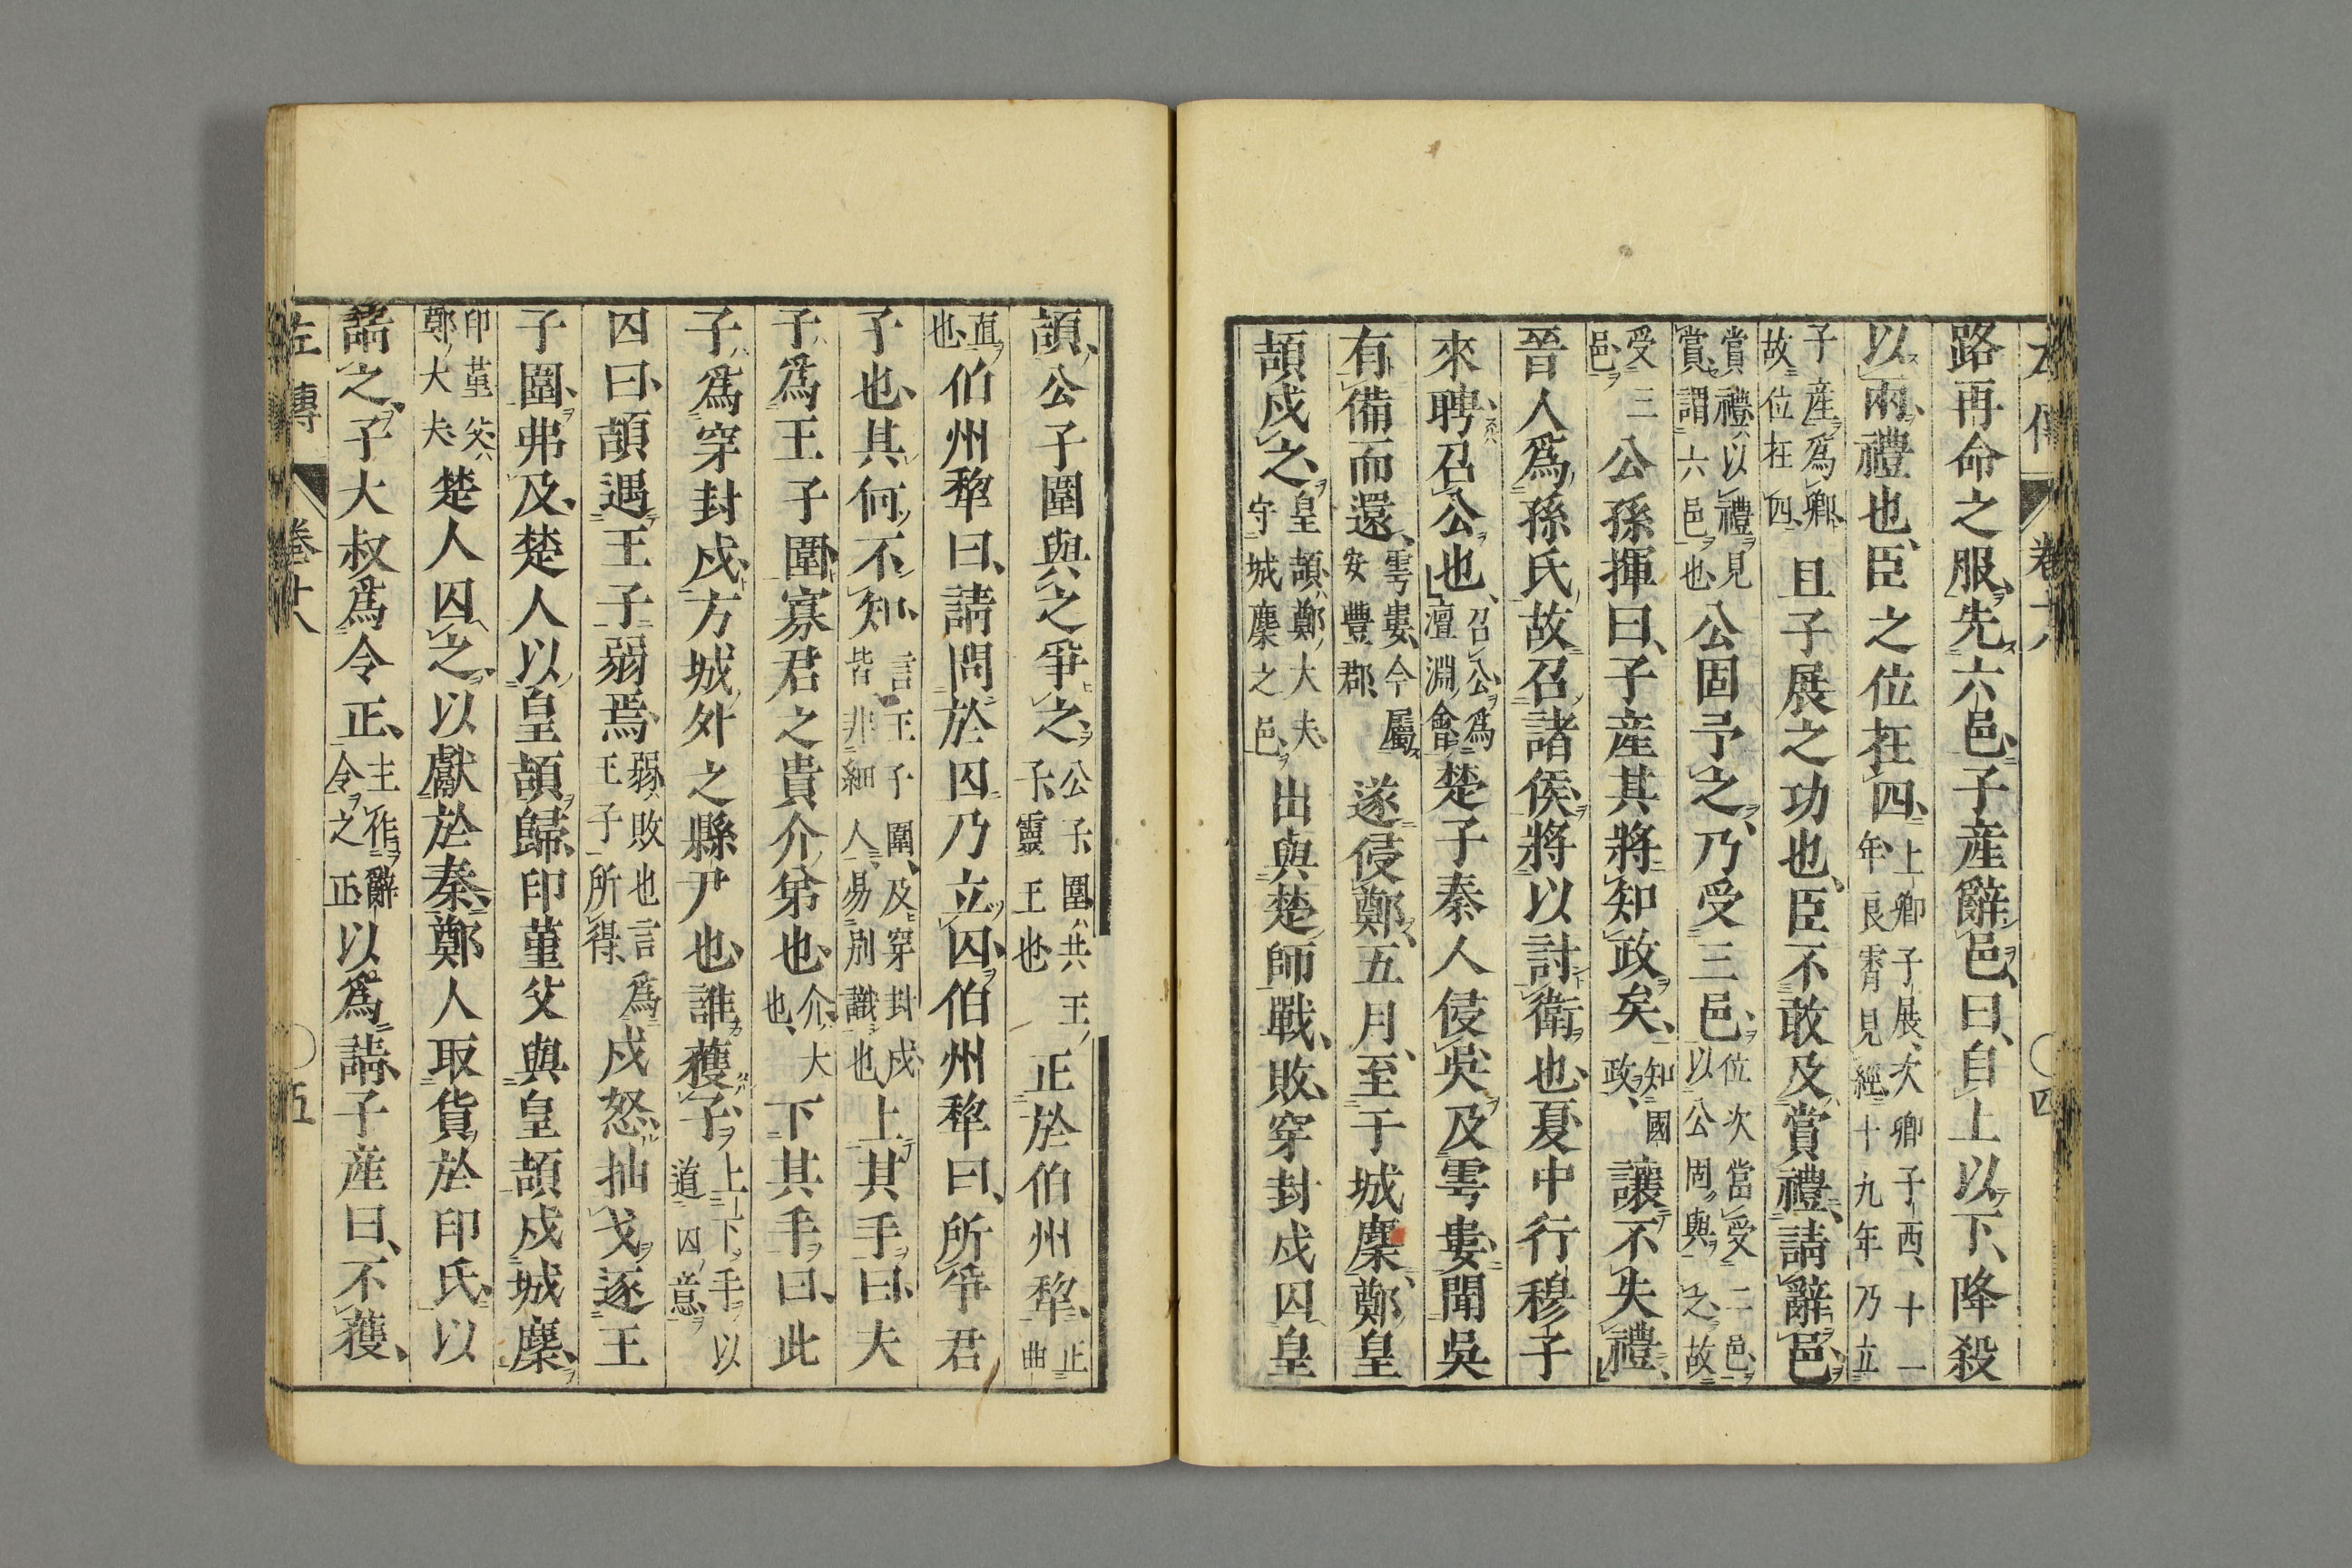 路再命之服先六邑子産辭邑曰自上以下降殺
以兩禮也臣之位在四上卿子展次卿子西十一年良霄見經十九年乃立
子産爲卿故位在四且子展之功也臣不敢及賞禮請辭邑
賞禮以禮見賞謂六邑也公固予之乃受三邑位次當受二邑以公固與之故
受三邑公孫揮曰子産其將知政矣知國政讓不失禮
晉人爲孫氏故召諸侯將以討衛也夏中行穆子
來聘召公也召公爲澶淵會楚子秦人侵吳及雩婁聞吳
有備而還雩婁今屬安豐郡遂侵鄭五月至于城麇鄭皇
頡戍之皇頡鄭大夫守城麇之邑出與楚師戰敗穿封戍囚皇
卷十八
四
頡公子圍與之爭之公子圍共王子靈王也正於伯州犂正曲
直也伯州犂曰請問於囚乃立囚伯州犂曰所爭君
子也其何不知言王子圍及穿封戍皆非細人易別識也上其手曰夫
子爲王子圍寡君之貴介弟也介大也下其手曰此
子爲穿封戍方城外之縣尹也誰獲子上下手以道囚意
囚曰頡遇王子弱焉弱敗也言爲王子所得戍怒抽戈逐王
子圍弗及楚人以皇頡歸印菫父與皇頡戍城麇
印菫父鄭大夫楚人囚之以獻於秦鄭人取貨於印氏以
請之子大叔爲令正主作辭令之正以爲請子産曰不獲
左傳
卷十八
五